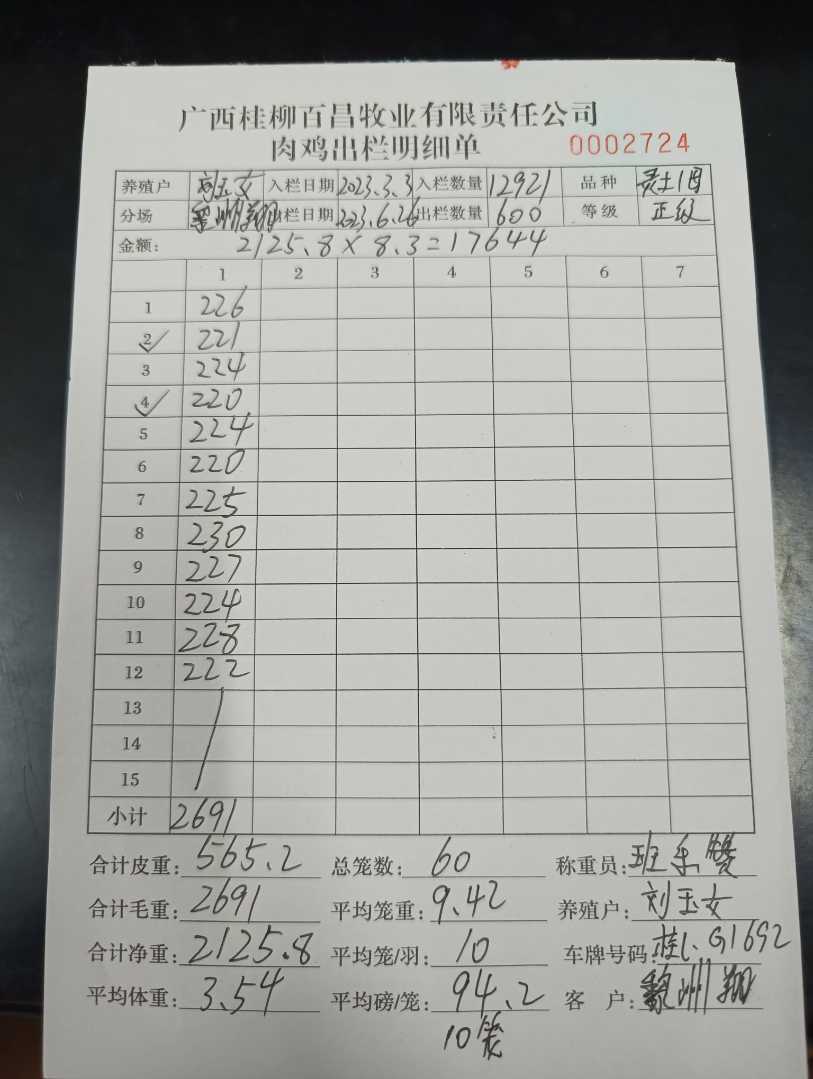 广西桂柳百昌牧业有限责任公司
肉鸡出栏明细单 0002724
养殖户 刘玉女 入栏日期 2023.3.3 入栏数量 12921 品种 灵土1母
分场 黎洲翔 出栏日期 2023.6.26 出栏数量 600 等级 正级
金额: 2125.8×8.3=17644
1 2 3 4 5 6 7
1 226
2 221
3 224
4 220
5 224
6 220
7 225
8 230
9 227
10 224
11 228
12 222
13
14
15
小计 2691
合计皮重: 565.2 总笼数: 60 称重员: 班
合计毛重: 2691 平均笼重: 9.42 养殖户: 刘玉女
合计净重: 2125.8 平均笼/羽: 10 车牌号码: 桂L.G1692
平均体重: 3.54 平均磅/笼: 94.2 客户: 黎洲翔
10笼